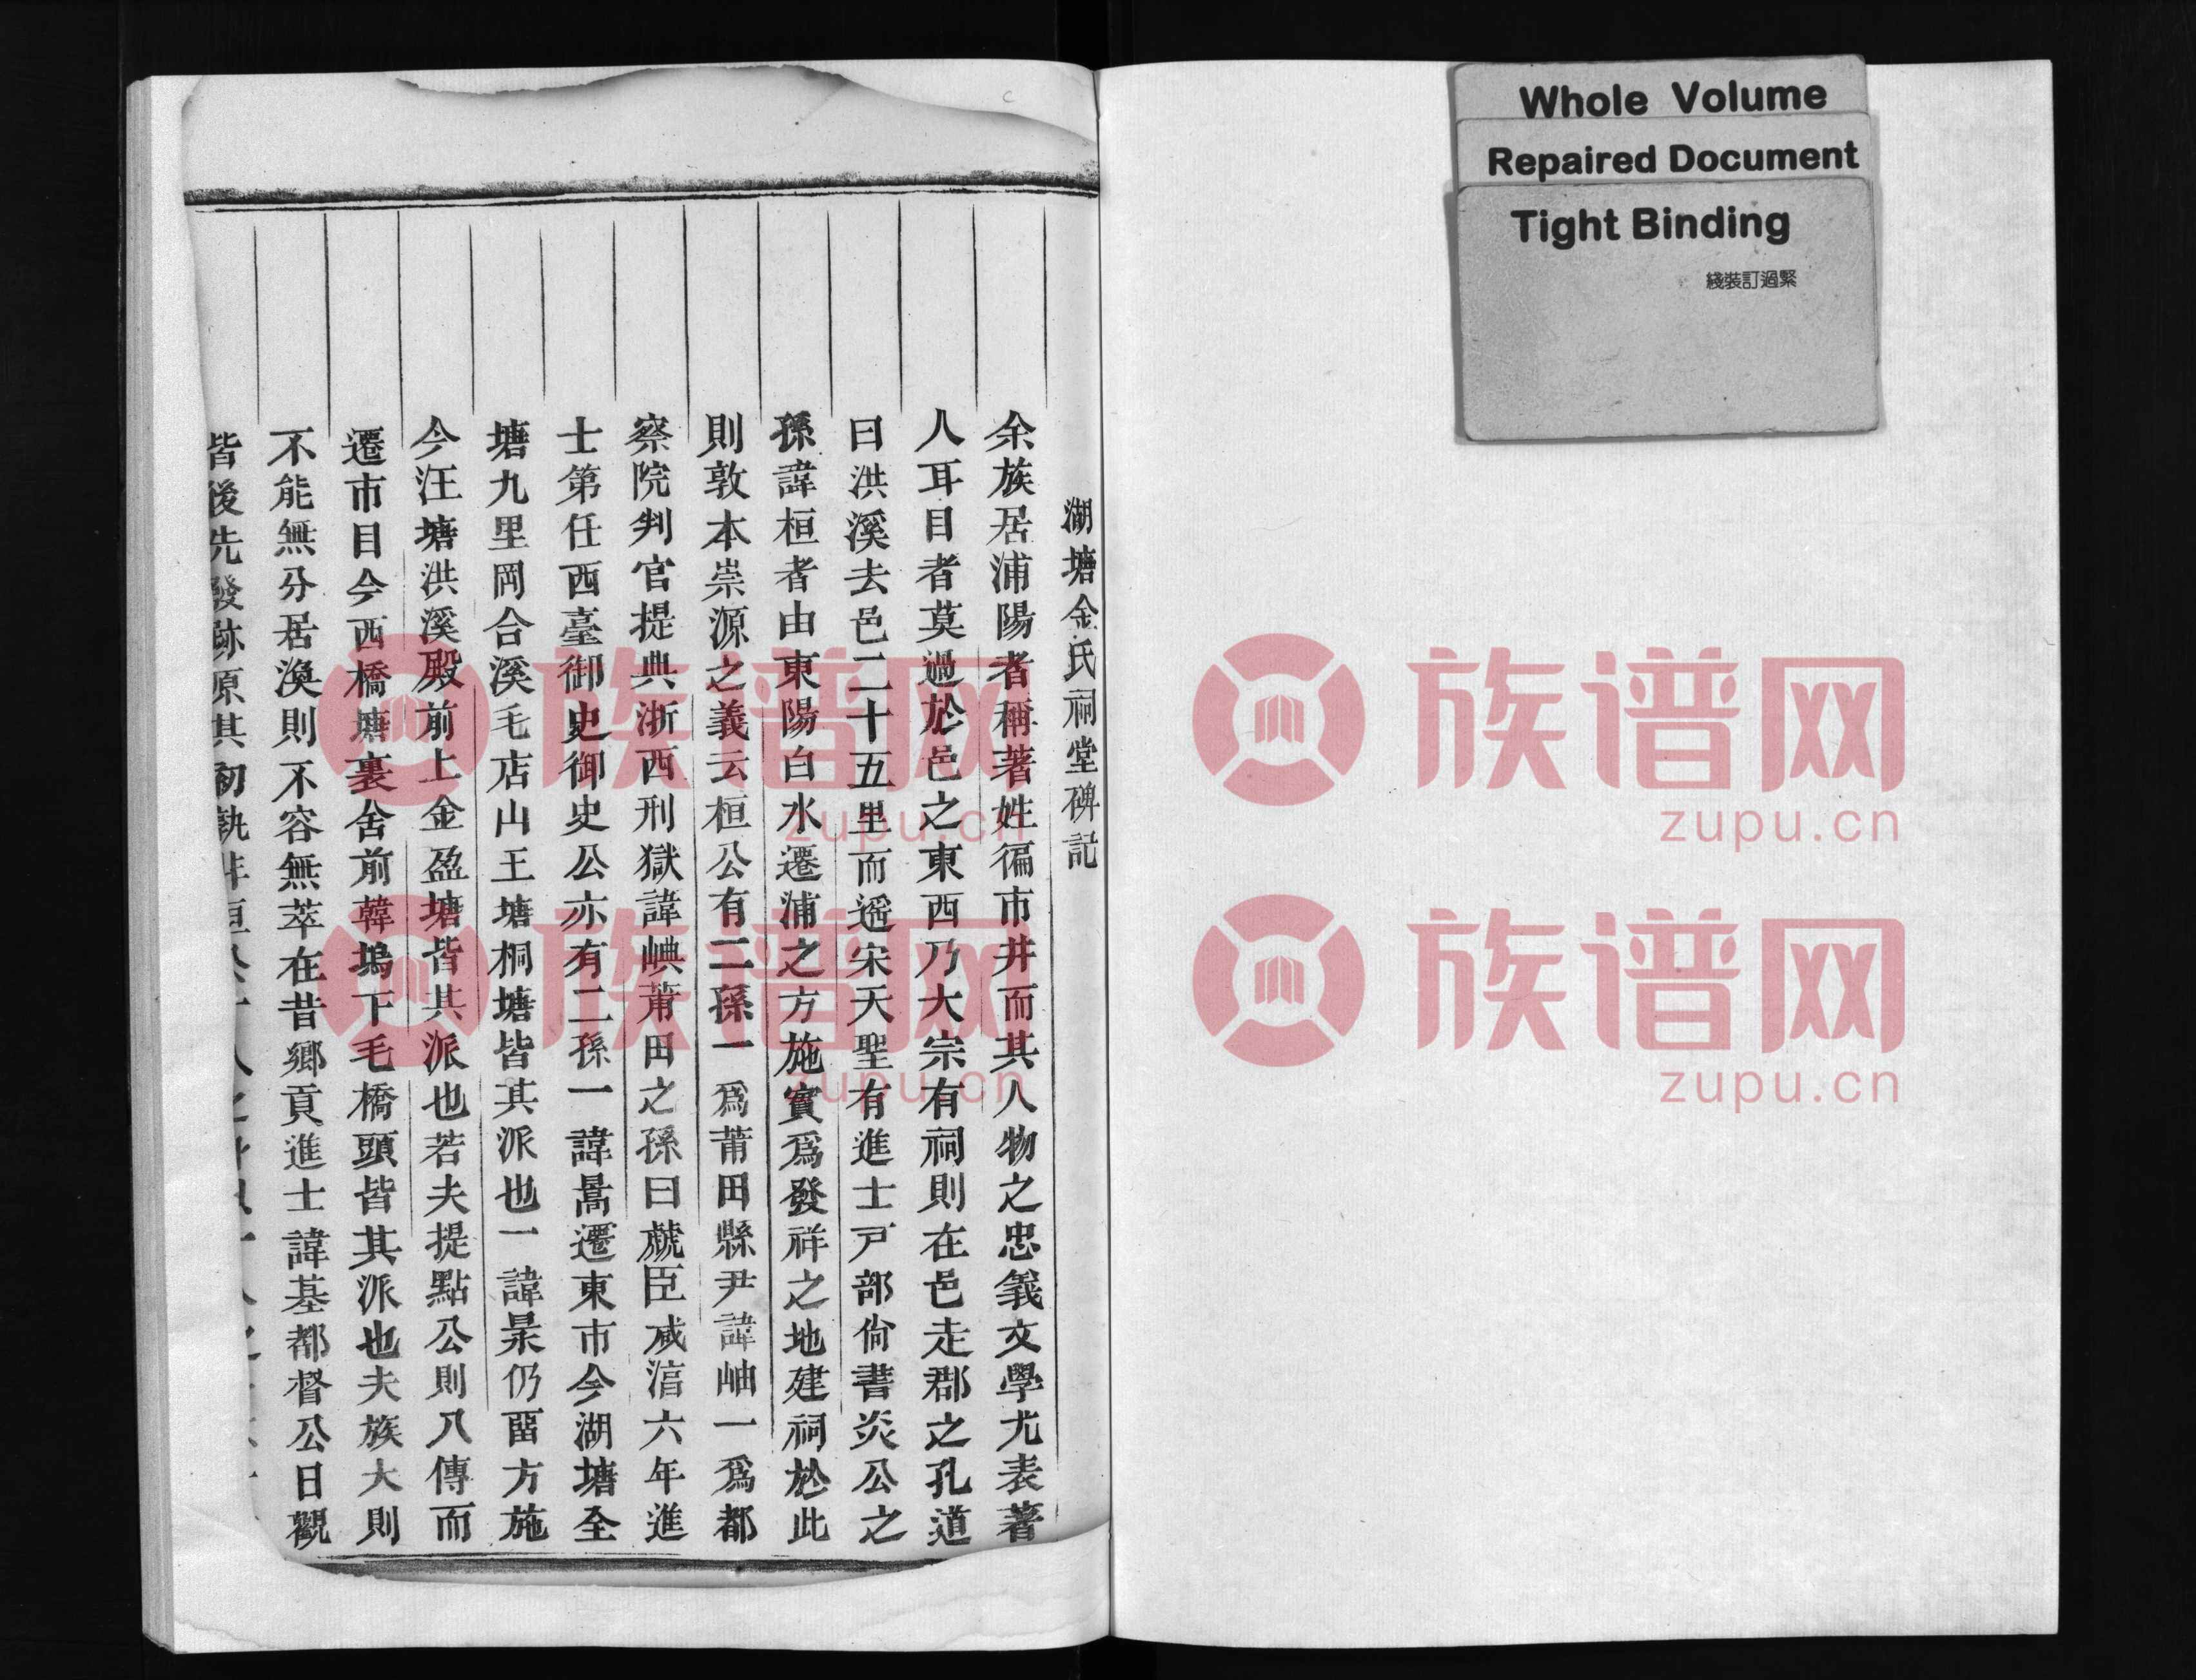 Whole Volume
Repaired Document
Tight Binding
綫裝訂過緊
湖塘金氏祠堂碑記
余族居浦陽者稱著姓徧市井而其人物之忠義文學尤表著
人耳目者莫過於邑之東西乃大宗有祠則在邑走郡之孔道
曰洪溪去邑二十五里而遥宋天聖有進士戸部尙書炎公之
孫諱桓者由東陽白水遷浦之方施實爲發祥之地建祠於此
則敦本崇源之義云桓公有二孫一爲莆田縣尹諱岫一爲都
察院判官提典浙西刑獄諱㟠莆田之孫曰虤臣咸淳六年進
士第任西臺御史御史公亦有二孫一諱暠遷東市今湖塘全
塘九里岡合溪毛店山王塘桐塘皆其派也一諱杲仍畱方施
今汪塘洪溪殿前上金盈塘皆其派也若夫提點公則八傳而
遷市目今西橋塘裏舍前韓塢下毛橋頭皆其派也夫族大則
不能無分居渙則不容無萃在昔鄉貢進士諱基都督公日觀
皆後先發跡原其初孰非
族谱网
zupu.cn
族谱网
zupu.cn
族谱网
zupu.cn
族谱网
zupu.cn